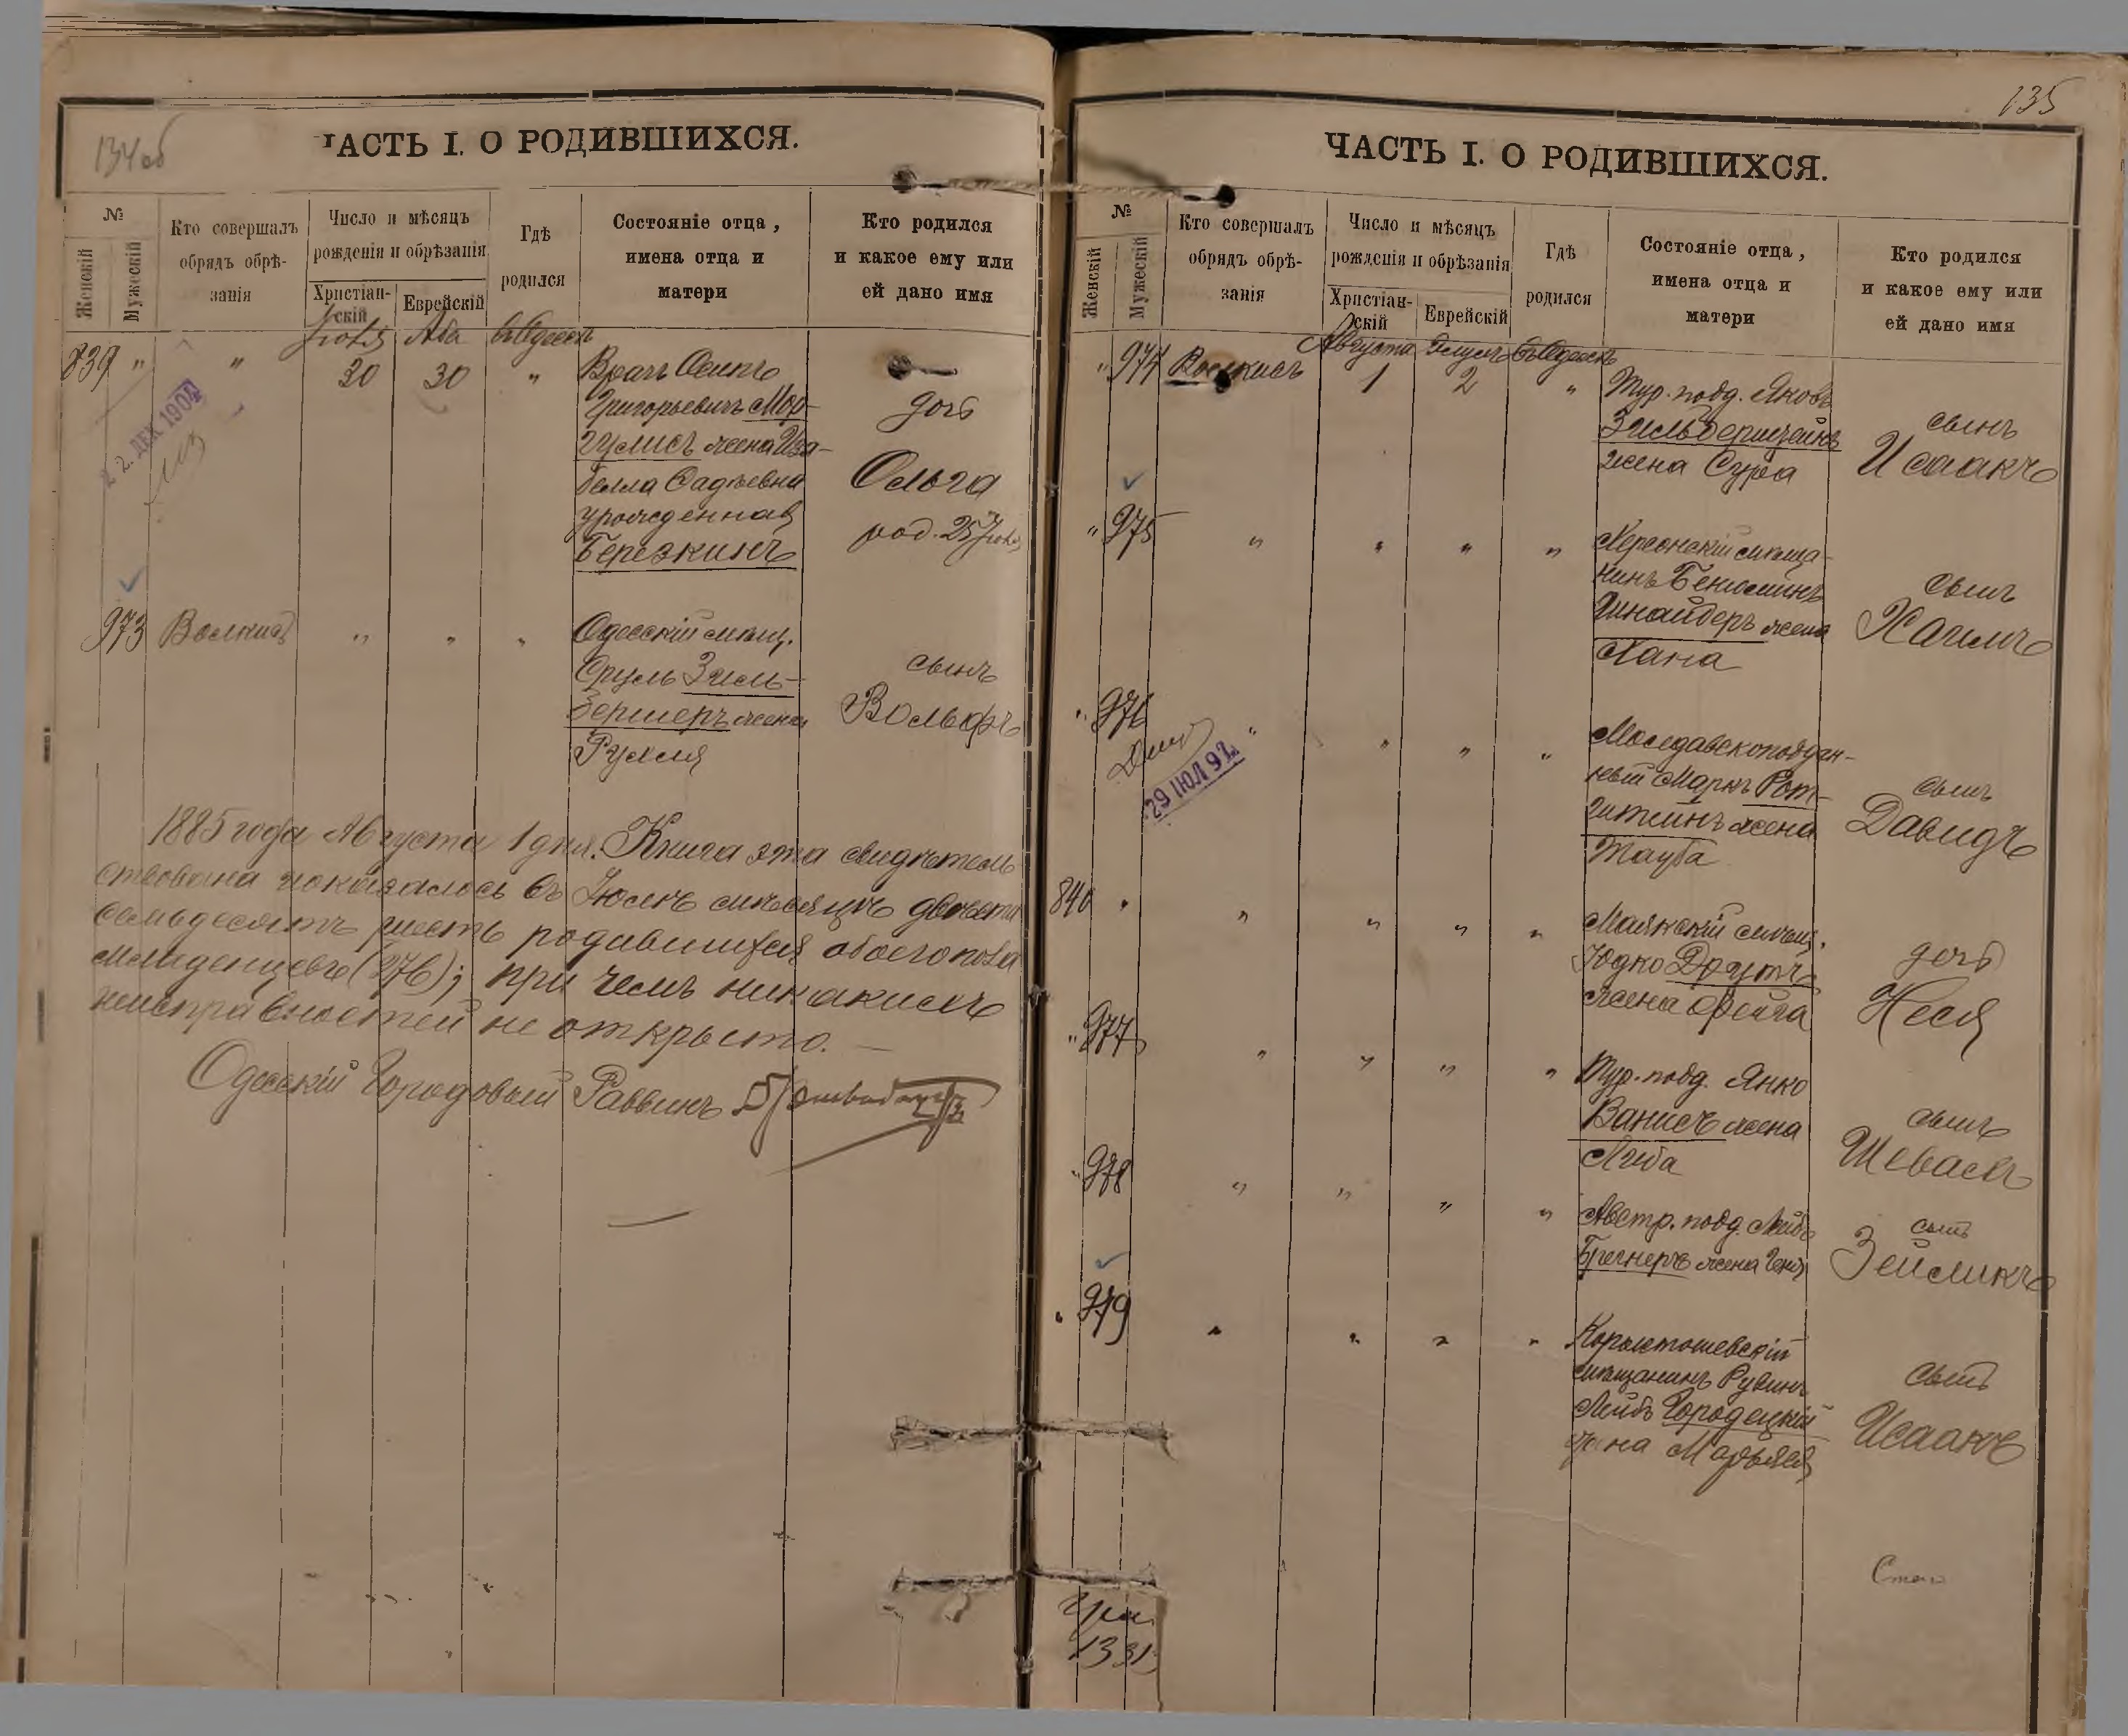 134 об
ЧАСТЬ I. О РОДИВШИХСЯ.
№
Женскій
Мужескій
Кто совершалъ обрядъ обрѣ-занія
Число и мѣсяцъ рожденія и обрѣзанія
Христіан-скій
Еврейскій
Гдѣ родился
Состояніе отца, имена отца и матери
Кто родился и какое ему или ей дано имя
Аба въ Одессѣ
839 " " 30 30 "
Врачъ Осипъ
Григорьевичъ Мор-
гулисъ жена Иза-
белла Фадѣевна
урожденная
Березкинъ
дочь
Ольга
род. 25 Іюля
22. ДЕК 1904
973 " " "
Одесскій мѣщ.
Сруль Зиль-
бершеръ жена
Рухля
сынъ
Вольфъ
1885 года Августа 1 дня. Книга эта свидѣтель
ствована и оказалось въ Іюлѣ мѣсяцѣ двѣсти
семьдесятъ шесть родившихся обоего пола
младенцевъ (276); при чемъ никакихъ
неисправностей не открыто. —
Одесскій Городовый Раввинъ
135
ЧАСТЬ I. О РОДИВШИХСЯ.
№
Женскій
Мужескій
Кто совершалъ обрядъ обрѣ-занія
Число и мѣсяцъ рожденія и обрѣзанія
Христіан-скій
Еврейскій
Гдѣ родился
Состояніе отца, имена отца и матери
Кто родился и какое ему или ей дано имя
Августа Элулъ въ Одессѣ
" 974 1 2 "
Тур. подд. Яковъ
Зильберштейнъ
жена Сура
сынъ
Исаакъ
" 975 " " " "
Херсонскій мѣща-
нинъ Беньюминъ
Шнайдеръ жена
Хана
сынъ
Хаимъ
" 976 " " " "
29 ІЮЛ 92
Молдавскоподдан-
ный Маркъ Рот-
штейнъ жена
Тауба
сынъ
Давидъ
840 " " " " "
Маякскій мѣщ.
Юдко Друтъ
жена Фейга
дочь
Неся
" 977 " " " "
Тур. подд. Янко
Ванисъ жена
Люба
сынъ
" 978 " " " "
Австр. подд. Лейб
Брегнеръ жена
сынъ
Зейликъ
" 979 " " " "
Коростошевскій
мѣщанинъ Рувинъ
Лейбъ Городецкій
жена Марьяся
сынъ
Исаакъ
1331